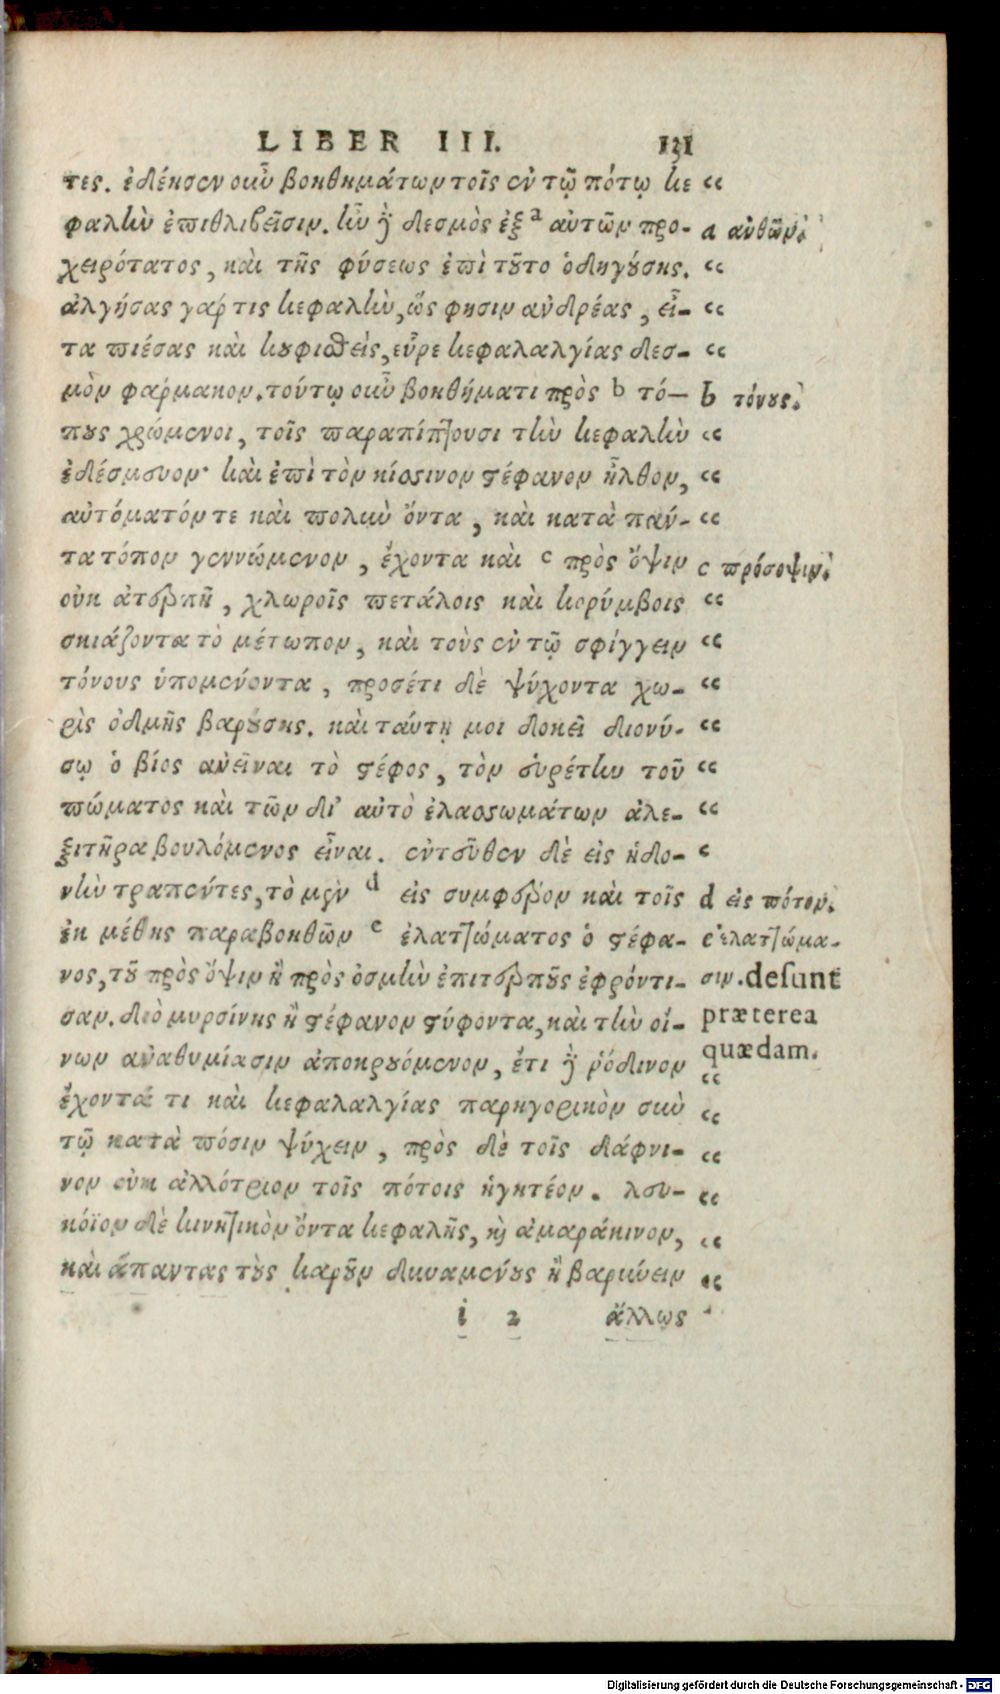 LIBER III. 131
τες. ἐδέησεν οὖν βοηθημάτων τοῖς ἐν τῷ πότῳ κε „
φαλὴν ἐπιθλιβεῖσιν. ἦν ᾖ δεσμὸς ἐξ a αὐτῶν προ- a ἀνθῶν.
χειρότατος, καὶ τῆς φύσεως ἐπὶ τοῦτο ὁδηγούσης. „
ἀλγήσας γάρ τις κεφαλὴν, ὥς φησιν ἀνδρέας, εἶ- „
τα πιέσας καὶ κουφισθεὶς, εὗρε κεφαλαλγίας δεσ- „
μὸν φάρμακον. τούτῳ οὖν βοηθήματι πρὸς b τό- b τόνους.
πους χρώμενοι, τοῖς παραπίπτουσι τὴν κεφαλὴν „
ἐδέσμευον· καὶ ἐπὶ τὸν κίσσινον στέφανον ἦλθον, „
αὐτόματόν τε καὶ πολὺν ὄντα, καὶ κατὰ πάν- „
τα τόπον γεννώμενον, ἔχοντα καὶ c πρὸς ὄψιν c πρόσοψιν.
οὐκ ἀτερπῆ, χλωροῖς πετάλοις καὶ κορύμβοις „
σκιάζοντα τὸ μέτωπον, καὶ τοὺς ἐν τῷ σφίγγειν „
τόνους ὑπομένοντα, προσέτι δὲ ψύχοντα χω- „
ρὶς ὀδμῆς βαρούσης. καὶ ταύτῃ μοι δοκεῖ διονύ- „
σῳ ὁ βίος ἀνεῖναι τὸ στέφος, τὸν εὑρέτην τοῦ „
πώματος καὶ τῶν δι' αὐτὸ ἐλασσωμάτων ἀλε- „
ξιτῆρα βουλόμενος εἶναι. ἐντεῦθεν δὲ εἰς ἡδο- „
νὴν τραπέντες, τὸ μὲν d εἰς συμφέρον καὶ τοῖς d εἰς πότον.
ἐκ μέθης παραβοηθῶν e ἐλαττώματος ὁ στέφα- e ἐλαττώμα-
νος, τοῦ πρὸς ὄψιν ἢ πρὸς ὀσμὴν ἐπιτερποῦς ἐφρόντι- σιν. desunt
σαν. διὸ μυρσίνης ἢ στέφανον στύφοντα, καὶ τὴν οἴ- præterea
νων ἀναθυμίασιν ἀποκρουόμενον, ἔτι ᾖ ῥόδινον quædam.
ἔχοντά τι καὶ κεφαλαλγίας παρηγορικὸν σὺν „
τῷ κατὰ πόσιν ψύχειν, πρὸς δὲ τοῖς δάφνι- „
νον οὐκ ἀλλότριον τοῖς πότοις ἡγητέον. λευ- „
κόϊον δὲ κινητικὸν ὄντα κεφαλῆς, καὶ ἀμαράκινον, „
καὶ ἅπαντας τοὺς καροῦν δυναμένους ἢ βαρύνειν „
i 2 ἄλλως
Digitalisierung gefördert durch die Deutsche Forschungsgemeinschaft - DFG